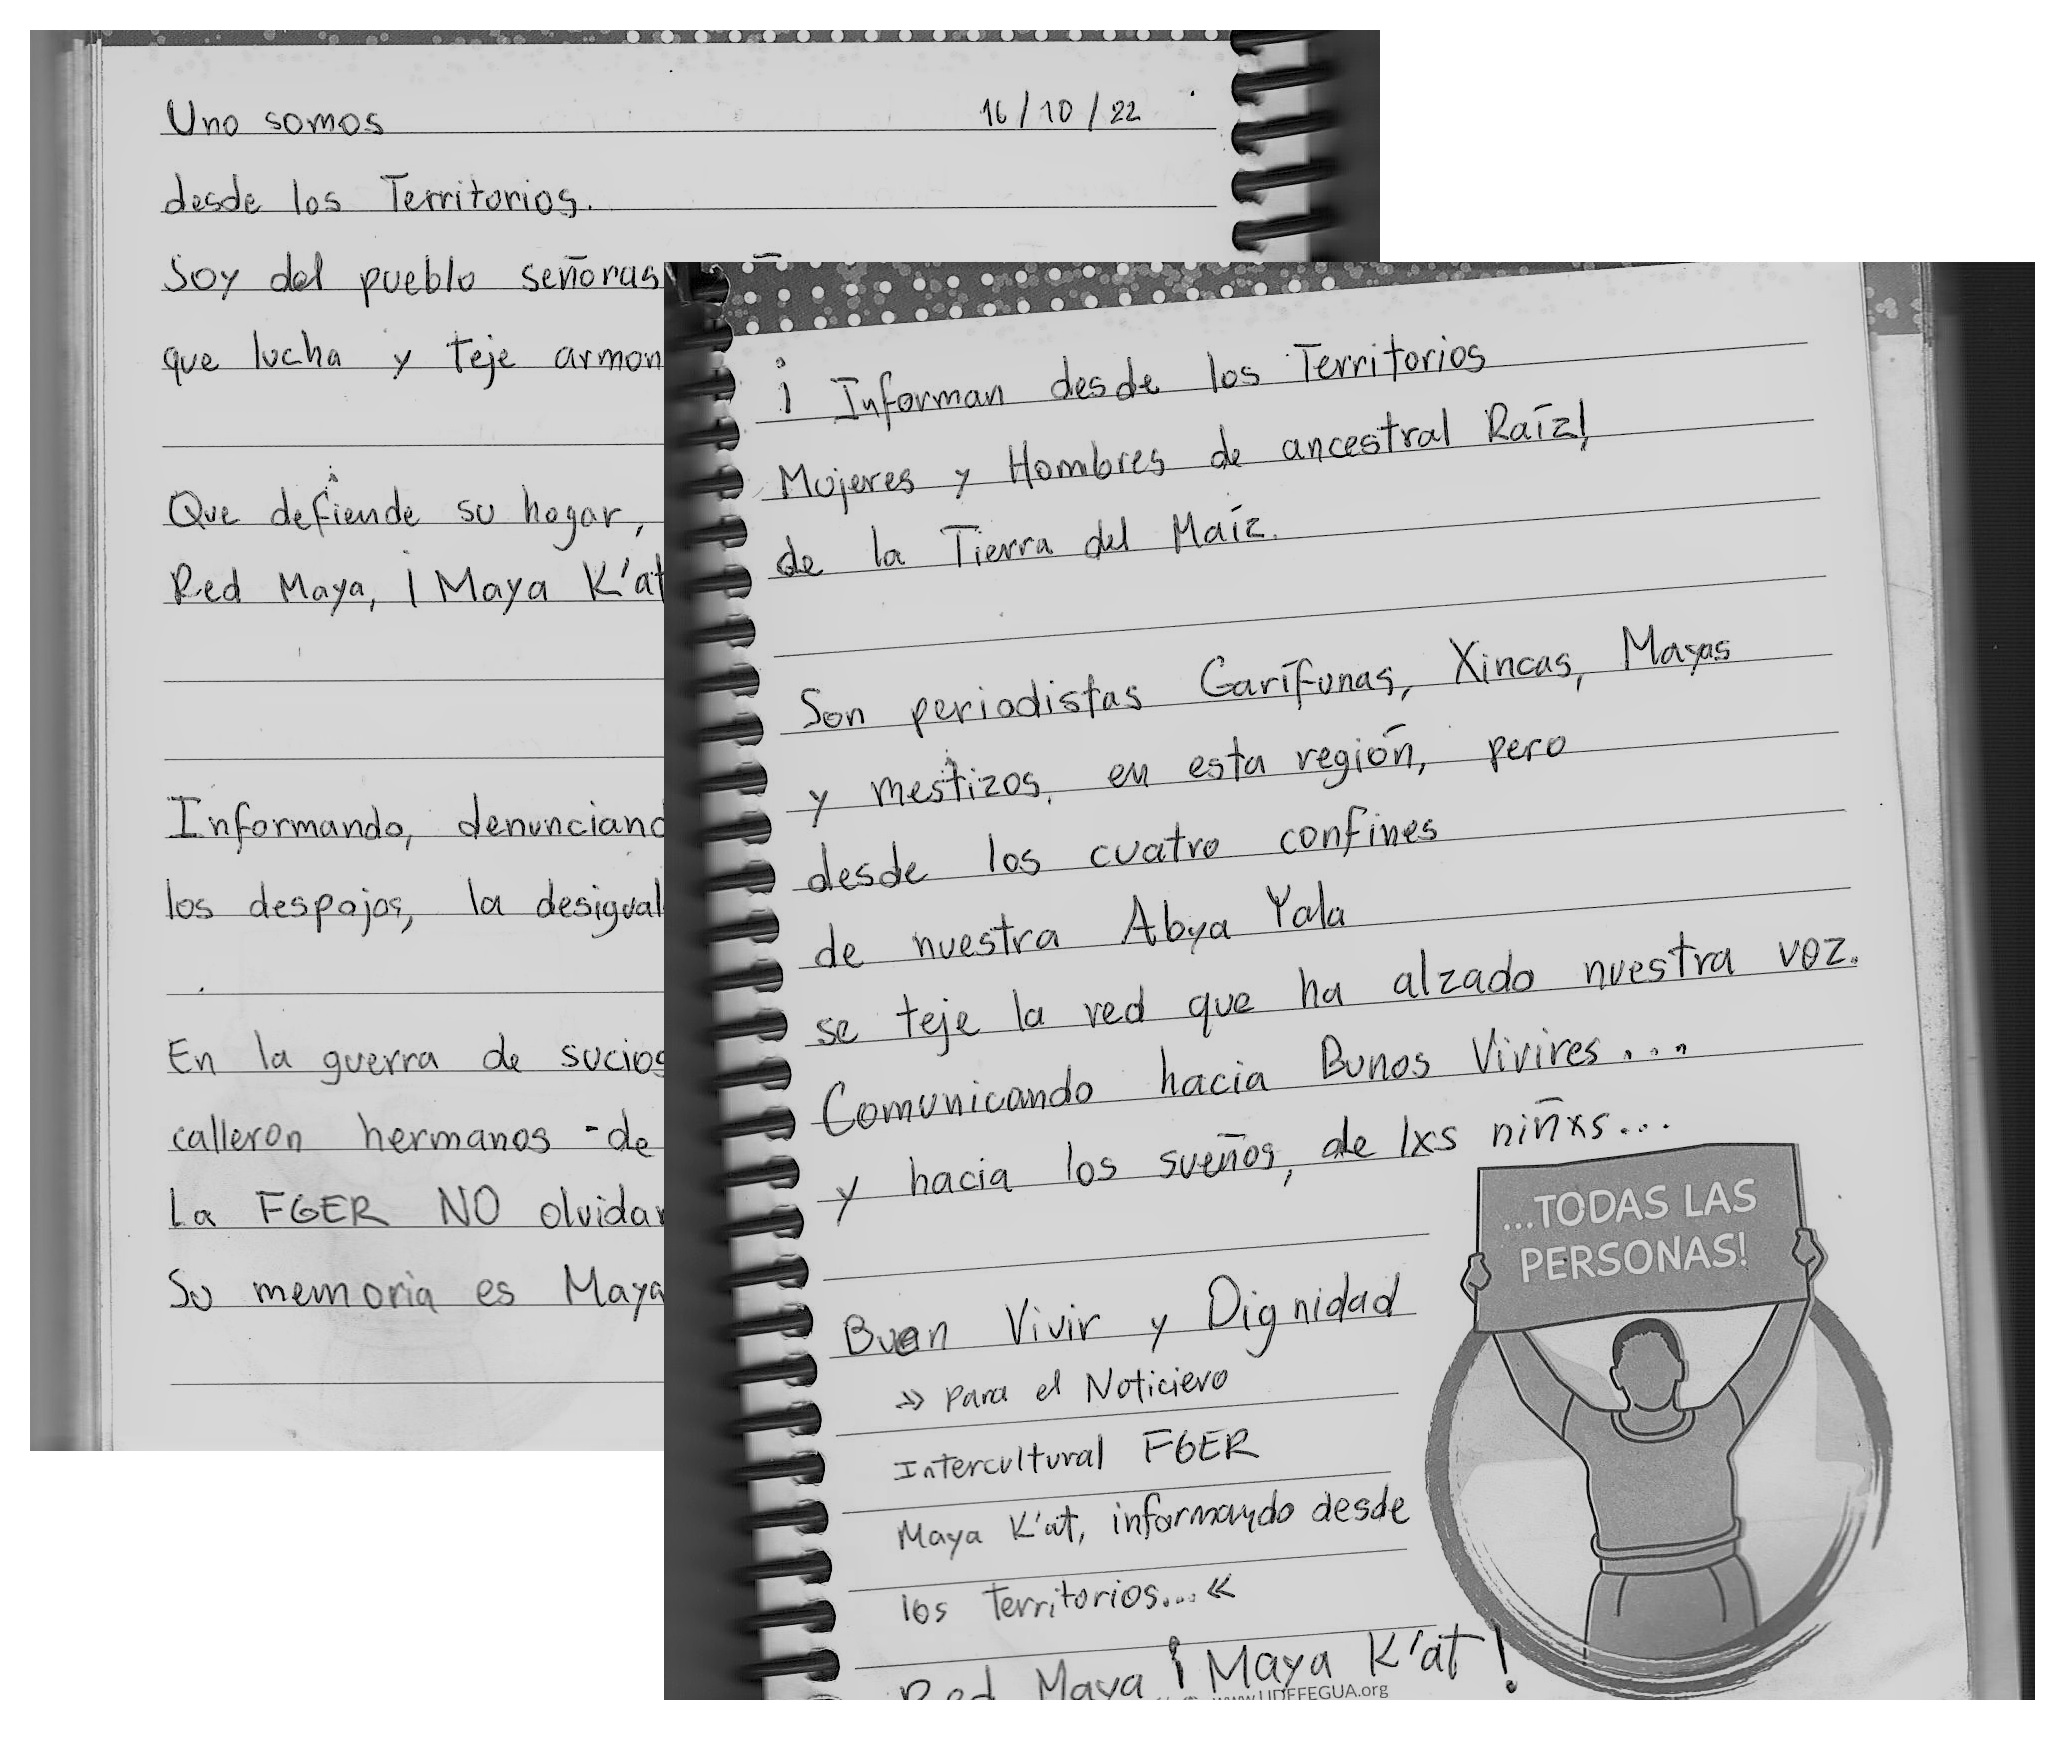 Uno somos 16/10/22
desde los Territorios.
Soy del pueblo señoras
que lucha y Teje armon
Que defiende su hogar,
Red Maya, ¡Maya K'at
Informando, denunciand
los despojos, la desigual
En la guerra de sucios
calleron hermanos - de
La FGER NO olvidar
Su memoria es Maya
¡Informan desde los Territorios
Mujeres y Hombres de ancestral Raíz!
de la Tierra del Maíz.
Son periodistas Garífunas, Xincas, Mayas
y mestizos. en esta región, pero
desde los cuatro confines
de nuestra Abya Yala
se teje la red que ha alzado nuestra voz.
Comunicando hacia Bunos Vivires....
y hacia los sueños, de lxs niñxs...
Buen Vivir y Dignidad
» para el Noticiero
Intercultural FGER
Maya K'at, informando desde
los Territorios... «
Red Maya ¡Maya K'at!
...TODAS LAS
PERSONAS!
www.UDEFEGUA.org